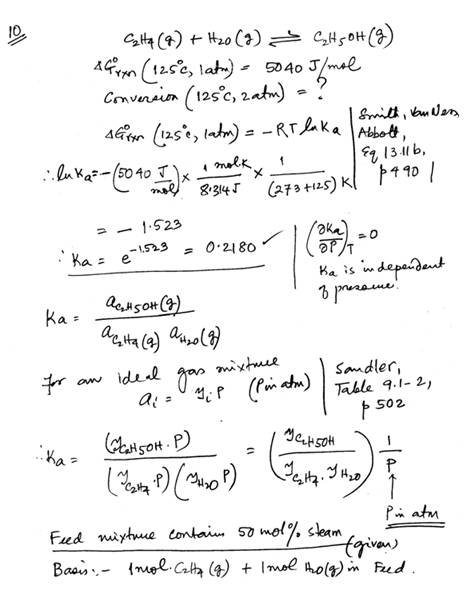 10
C₂H₄(g) + H₂O(g) ⇌ C₂H₅OH(g)
ΔG°rxn (125°C, 1atm) = 5040 J/mol
Conversion (125°C, 2atm) = ?
ΔG°rxn (125°C, 1atm) = -RT ln Ka | Smith, Van Ness, Abbott, Eq 13.11b, p490
∴ ln Ka = -(5040 J/mol) × 1 mol.K/8.314 J × 1/(273+125) K
= -1.523
∴ Ka = e^-1.523 = 0.2180 ✓ | (∂Ka/∂P)T = 0
Ka is independent of pressure.
Ka = aC₂H₅OH(g) / aC₂H₄(g) aH₂O(g)
for an ideal gas mixture
ai = yi P (P in atm) | Sandler, Table 9.1-2, p 502
∴ Ka = (yC₂H₅OH . P) / (yC₂H₄ . P)(yH₂O P) = (yC₂H₅OH / yC₂H₄ . yH₂O) 1/P
P in atm
Feed mixture contains 50 mol% steam (given)
Basis :- 1mol. C₂H₄(g) + 1mol H₂O(g) in Feed.